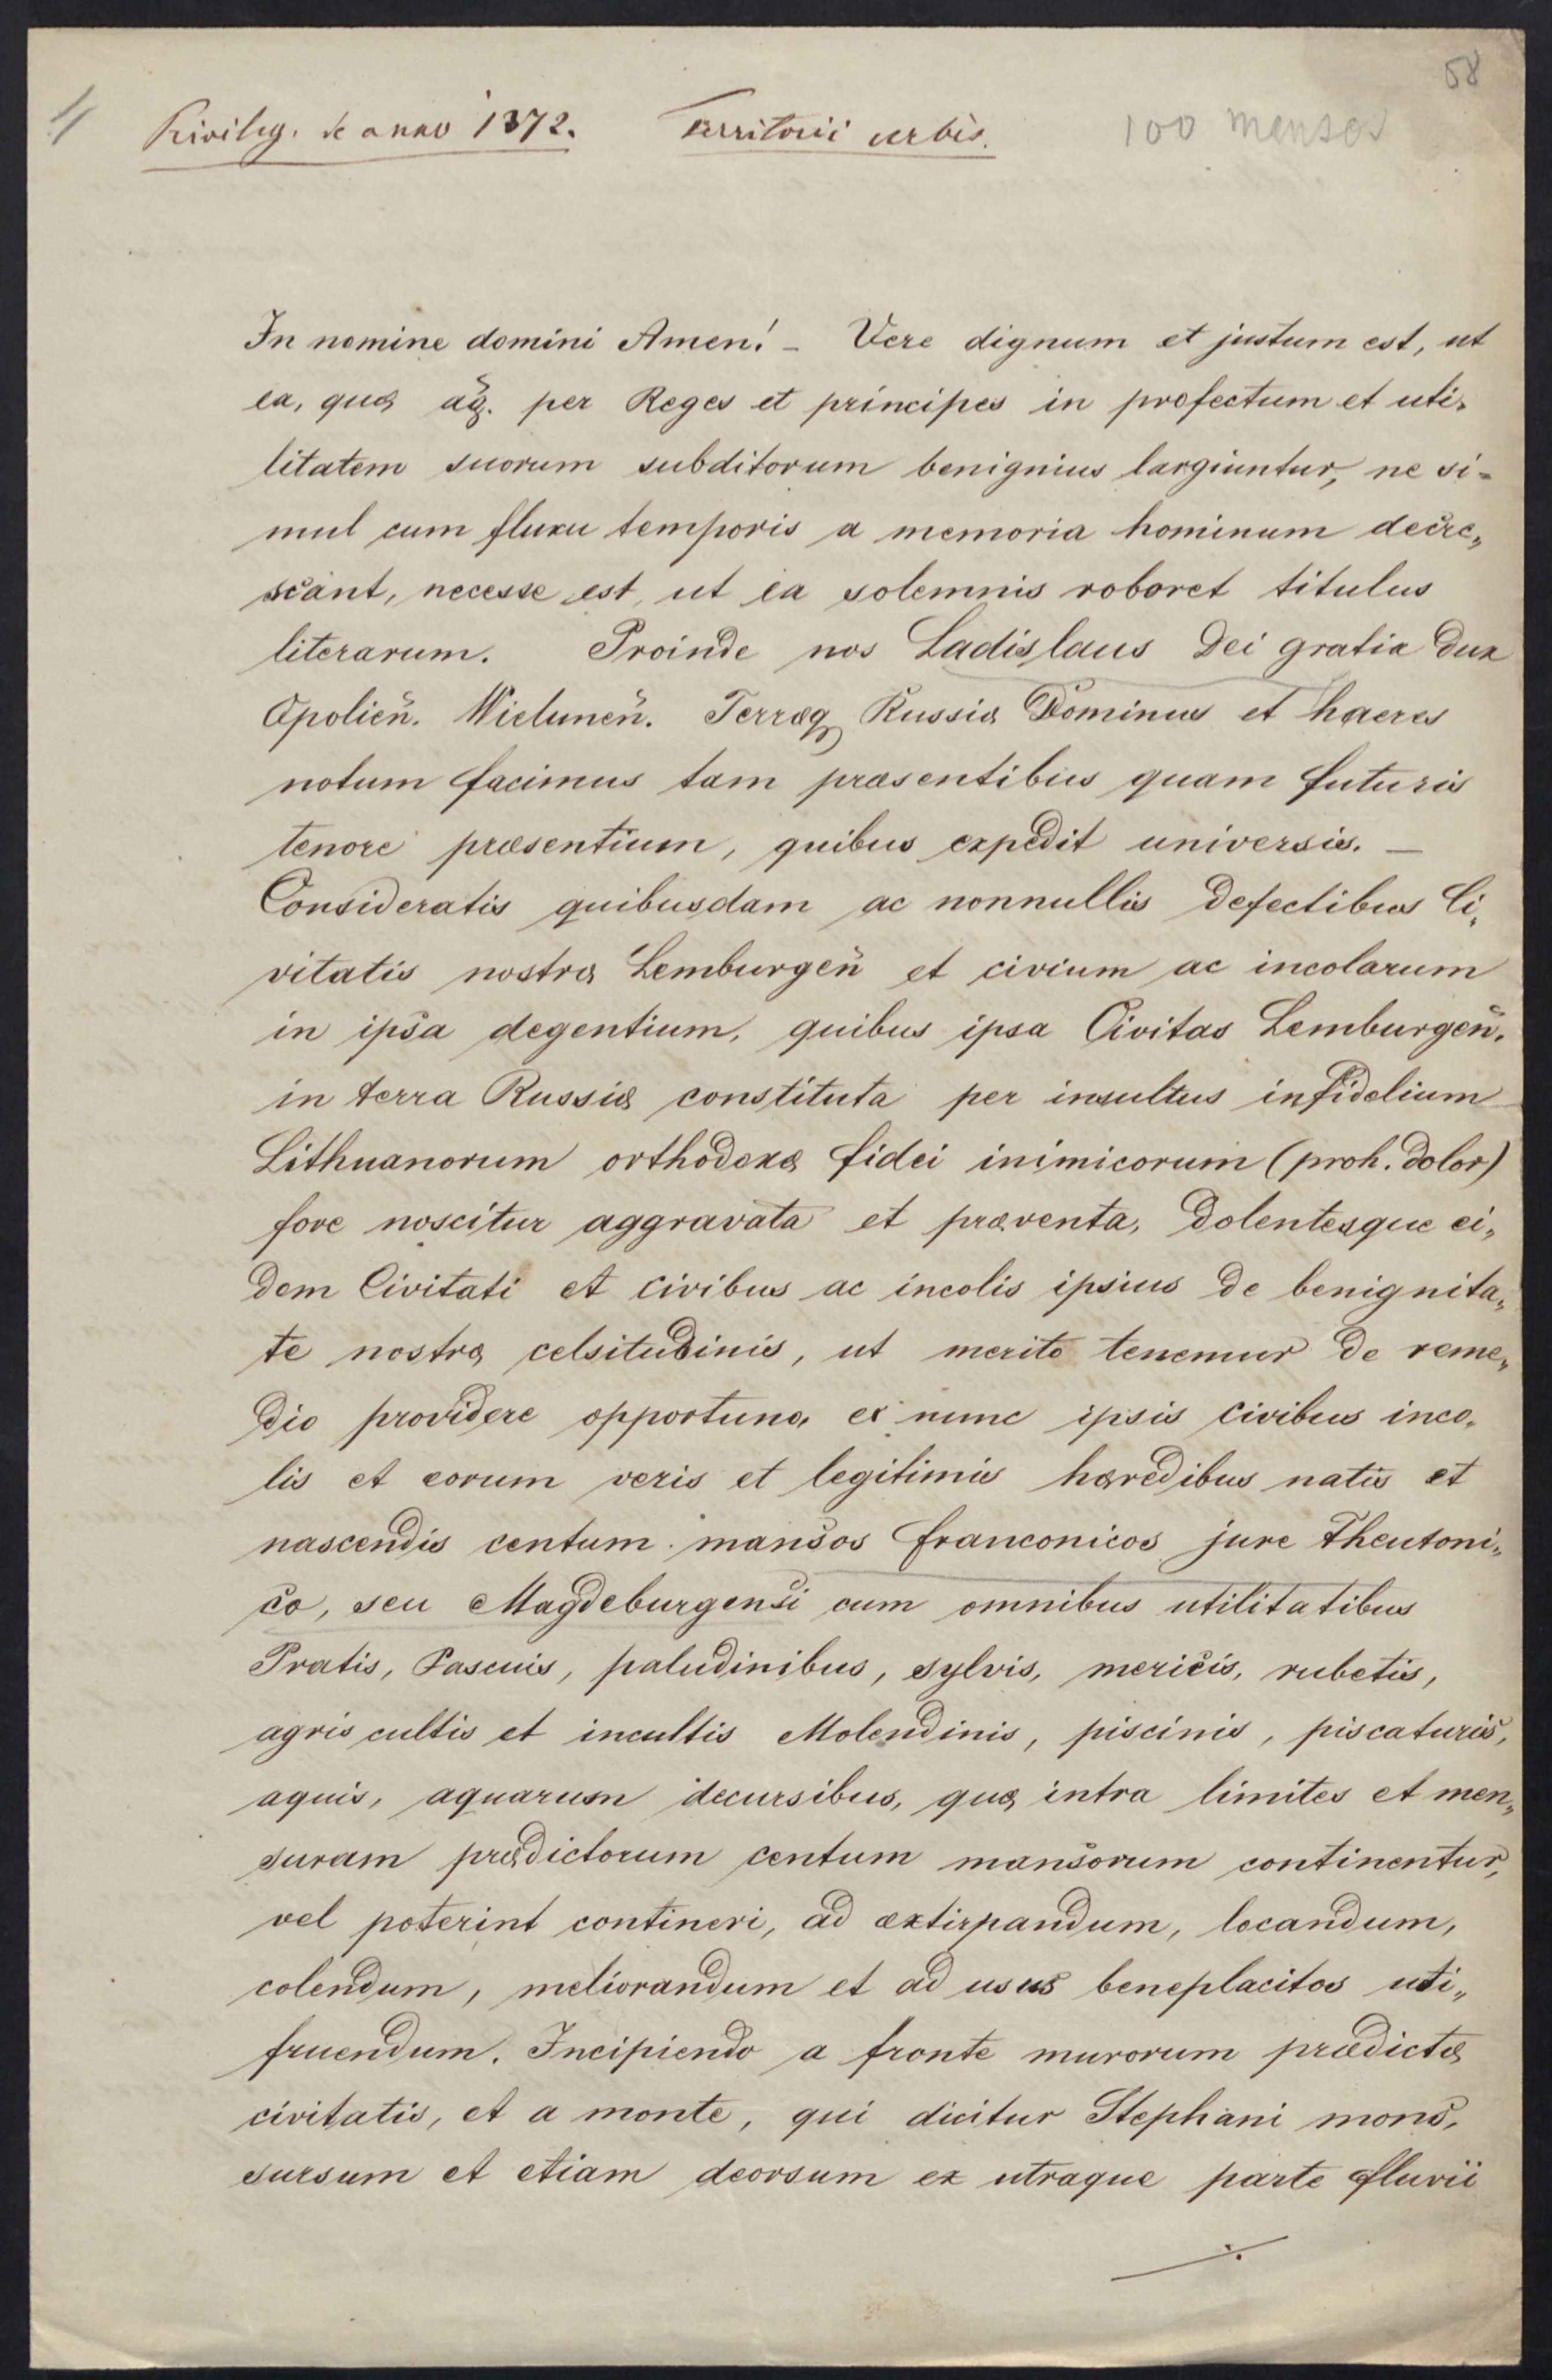 58
1/ Privileg. de anno 1372. Territorii urbis. 100 mansos
In nomine domini Amen! – Vere dignum et justum est, ut
ea, quæ per Reges et principes in profectum et uti-
litatem suorum subditorum benignius largiuntur, ne si-
mul cum fluxu temporis a memoria hominum decre„
scant, necesse est, ut ea solemnis roboret titulus
literarum. Proinde nos Ladislaus Dei gratia Dux
Opolien̄. Wielunen̄. Terræq Russiæ Dominus et haeres
notum facimus tam præsentibus quam futuris
tenore præsentium, quibus expedit universis. –
Consideratis quibusdam ac nonnullis defectibus Ci„
vitatis nostræ Lemburgen̄ et civium ac incolarum
in ipsa degentium, quibus ipsa Civitas Lemburgen̄.
in terra Russiæ constituta per insultus infidelium
Lithuanorum orthodoxæ fidei inimicorum (proh. dolor)
fore noscitur aggravata et præventa, dolentesque ei„
dem Civitati et civibus ac incolis ipsius de benignita„
te nostræ celsitudinis, ut merito tenemur de reme„
dio providere opportuno, ex nunc ipsis civibus inco„
lis et eorum veris et legitimis hæredibus natis et
nascendis centum mansos franconicos jure Theutoni„
co, seu Magdeburgensi cum omnibus utilitatibus
Pratis, Pascuis, paludinibus, sylvis, mericis, rubetis,
agris cultis et incultis Molendinis, piscinis, piscaturis,
aquis, aquarum decursibus, quæ intra limites et men„
suram prædictorum centum mansorum continentur,
vel poterint contineri, ad extirpandum, locandum,
colendum, meliorandum et ad usus beneplacitos uti„
fruendum. Incipiendo a fronte murorum prædictæ
civitatis, et a monte, qui dicitur Stephani mons,
sursum et etiam deorsum ex utraque parte fluvii